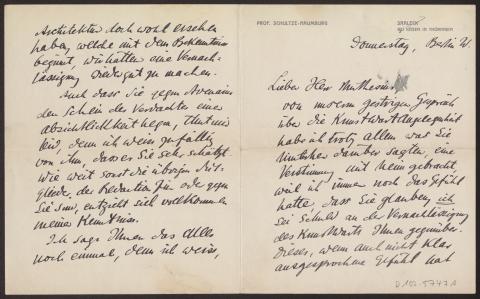 PROF. SCHULTZE-NAUMBURG
SAALECK
BEI KÖSEN IN THÜRINGEN
Donnerstag, Berlin W.
Lieber Herr Muthesius
von unserm gestrigen Gespräch
über die Kunstwart-Angelegenheit
habe ich trotz allem was Sie
darüber sagten, eine
Verstimmung mit heim gebracht,
weil ich immer noch das Gefühl
hatte, dass Sie glauben, ich
sei Schuld an der Vernachlässigung
des Kunstwarts Ihnen gegenüber.
Dieses, wenn auch nicht klar
ausgesprochene Gefühl hat
D 102-5747 A
Architekten doch wohl ersehen
haben, welche mit dem Bekenntnis
beginnt, wir hätten eine Vernach-
lässigung wieder gut zu machen.
Auch dass Sie gegen Avenarius
den Schein des Verdachtes einer
Absichtlichkeit hegen, thut mir
leid, denn ich weiss zufällig
von ihm, dass er Sie sehr schätzt.
Wie weit sonst die übrigen Mit-
glieder der Redaktion für oder gegen
Sie sind, entzieht sich vollkommen
meiner Kenntnis.
Ich sage Ihnen das Alles
noch einmal, denn ich weiss,